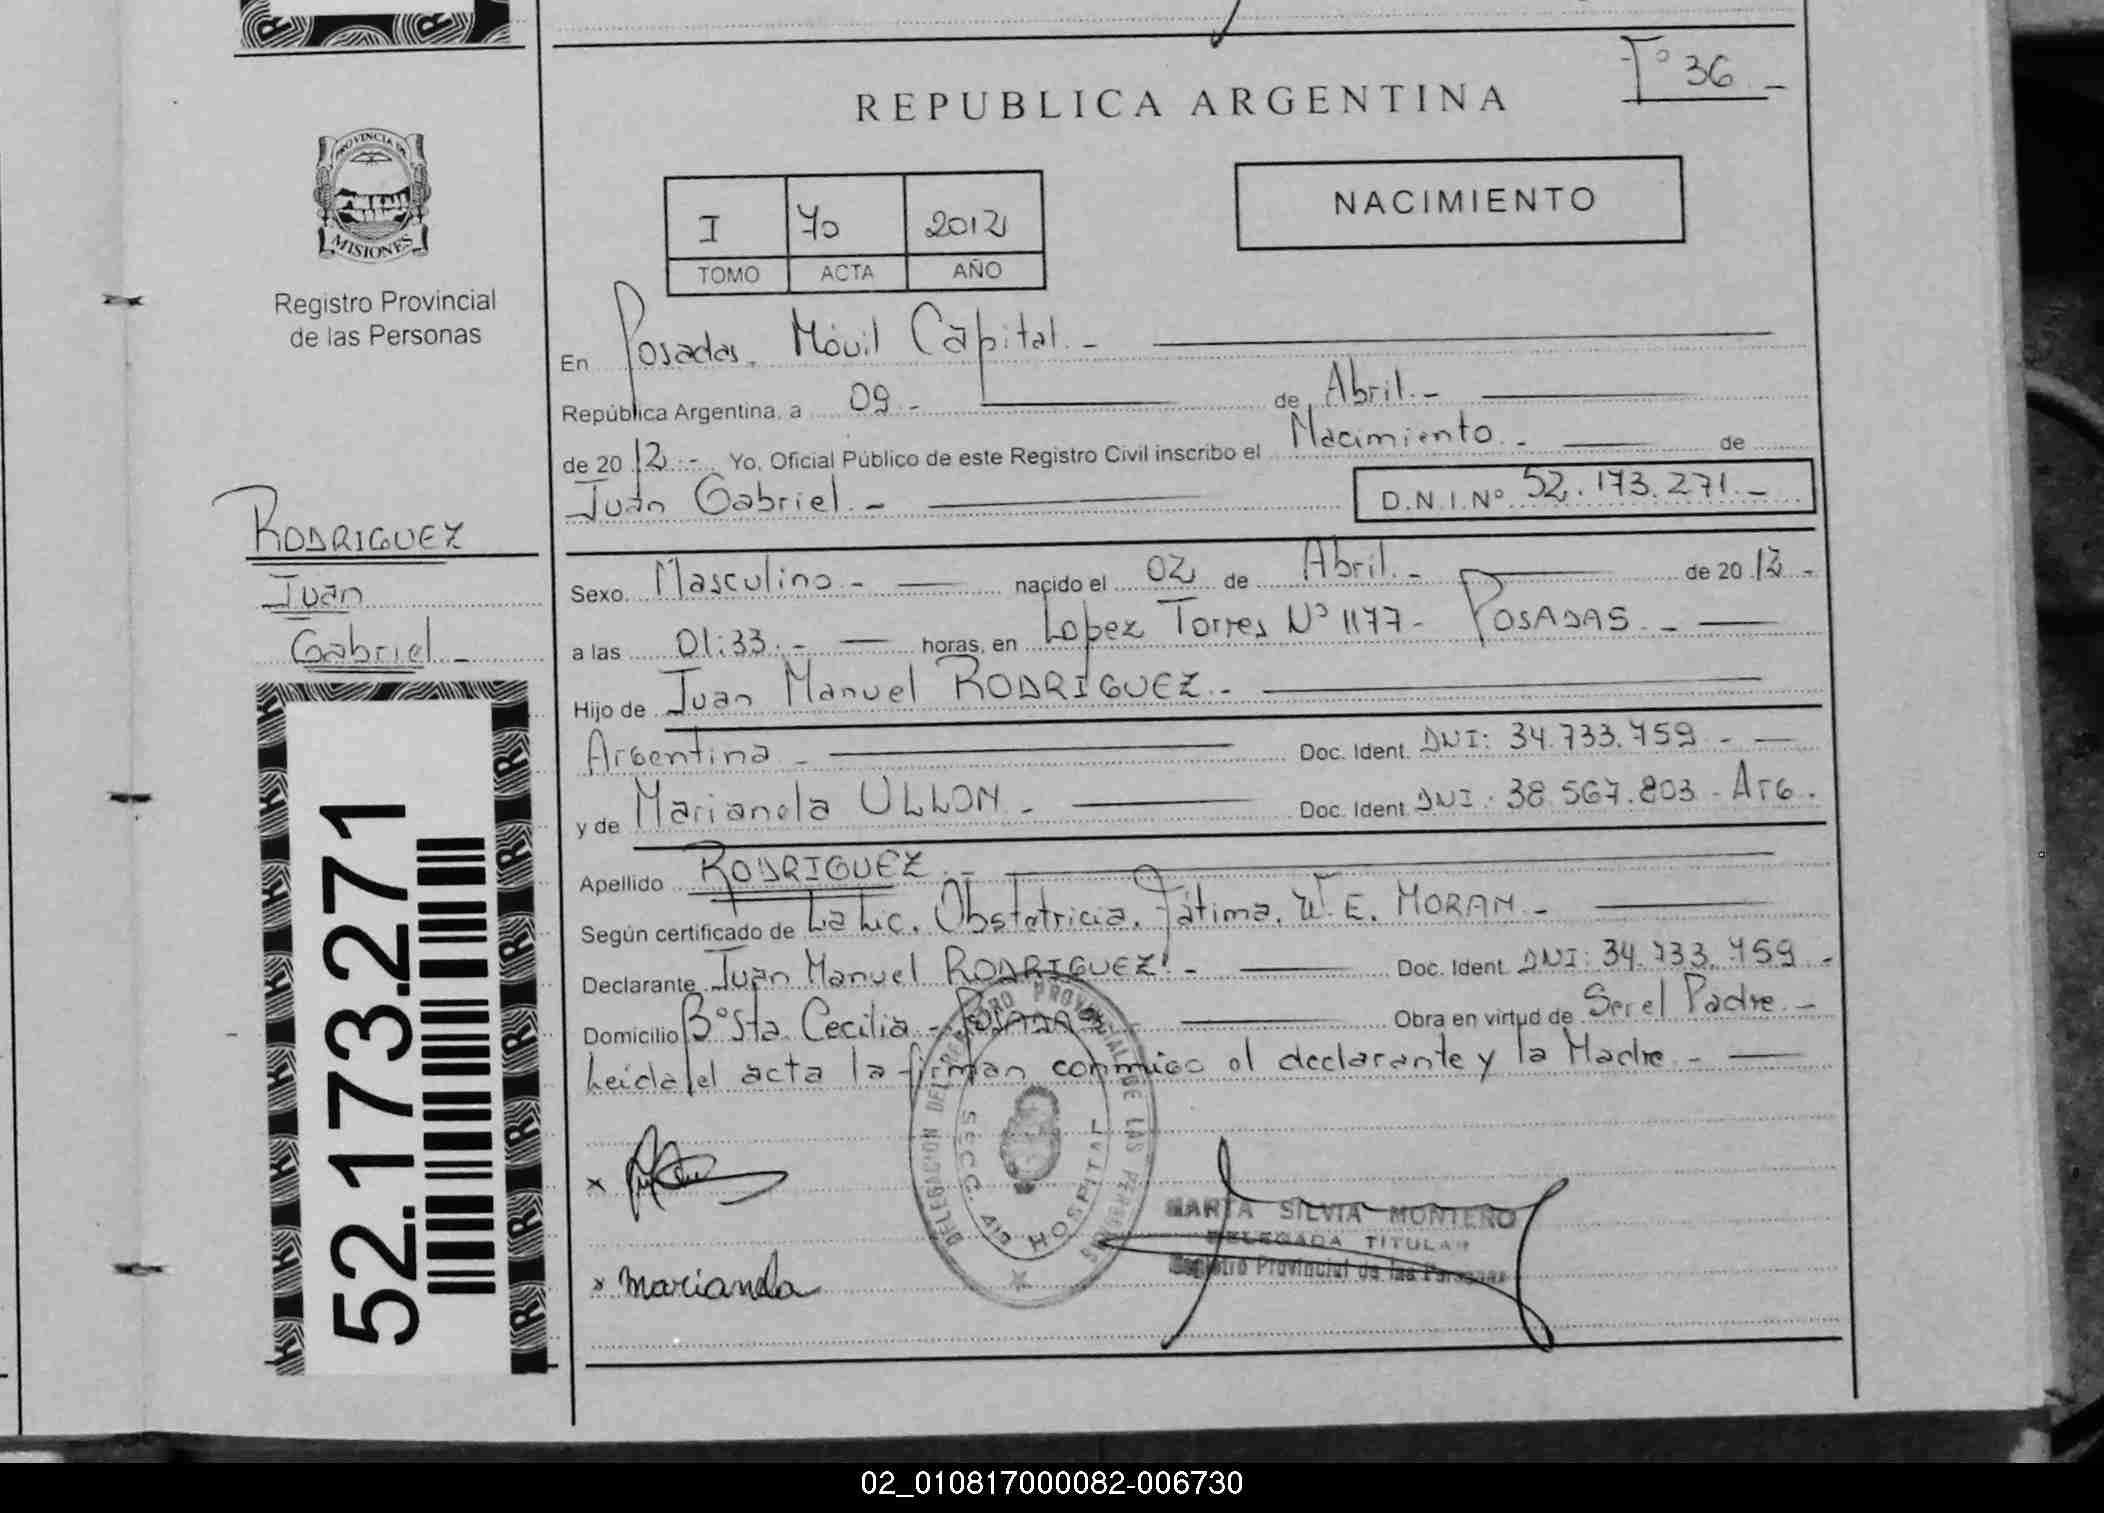 Fº 36.-
REPUBLICA ARGENTINA
NACIMIENTO
I 70 2012
TOMO ACTA AÑO
PROVINCIA DE
MISIONES
Registro Provincial
de las Personas
En Posadas. Móvil Capital.-
República Argentina, a 09.- de Abril.-
de 20 12.- Yo, Oficial Público de este Registro Civil inscribo el Nacimiento.- de
Juan Gabriel.- D.N.I.Nº 52.173.271.-
RODRIGUEZ
Juan
Gabriel.-
Sexo. Masculino.- nacido el 02 de Abril.- de 20 12.-
a las 01:33.- horas, en Lopez Torres Nº 1177- POSADAS.-
Hijo de Juan Manuel RODRIGUEZ.-
Argentina.- Doc. Ident. DNI: 34.733.759.-
y de Marianela ULLON.- Doc. Ident. DNI: 38.567.803.- Arg.
Apellido RODRIGUEZ.-
Según certificado de La Lic. Obstetricia. Fátima. W.E. MORAN.-
Declarante Juan Manuel RODRIGUEZ.- Doc. Ident. DNI: 34.733.759.-
Domicilio Bº Sta. Cecilia - POSADAS.- Obra en virtud de Ser el Padre.-
Leída el acta la firman conmigo el declarante y la Madre.-
52.173.271
DELEGACION DEL REGISTRO PROVINCIAL DE LAS PERSONAS
SECC. 4ta HOSPITAL
x
MARTA SILVIA MONTERO
DELEGADA TITULAR
Registro Provincial de las Personas
x Marianela
02_010817000082-006730